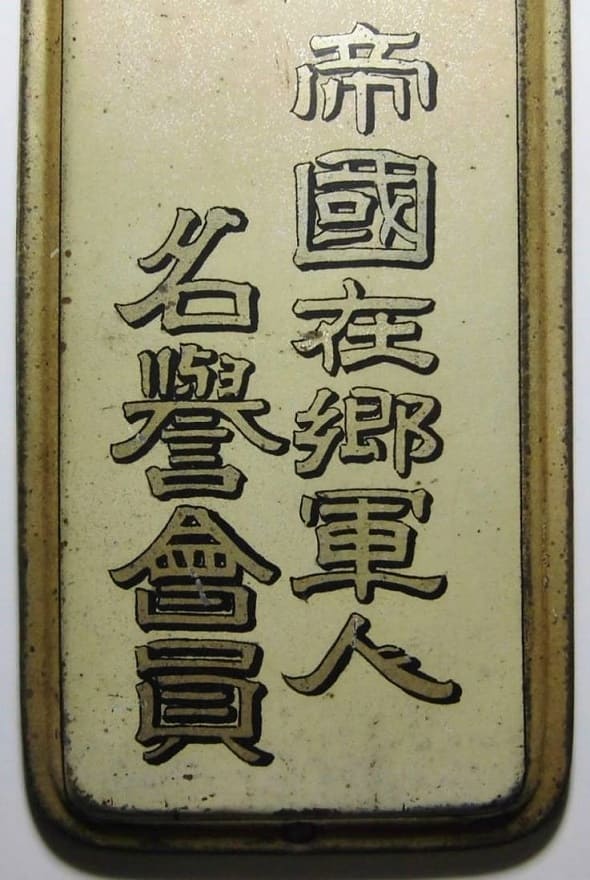 帝國在郷軍人
名譽會員